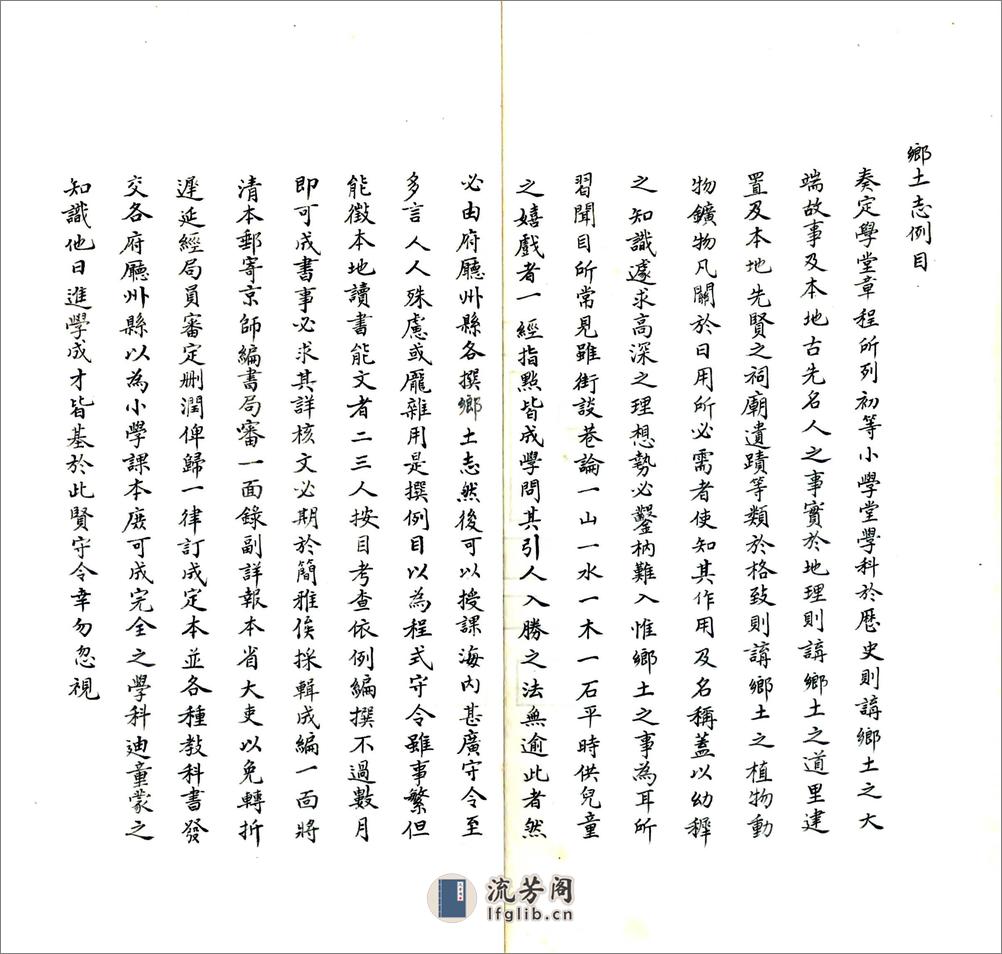 鄉土志例目
奏定學堂章程所列初等小學堂學科於歷史則講鄉土之大
端故事及本地古先名人之事實於地理則講鄉土之道里建
置及本地先賢之祠廟遺蹟等類於格致則講鄉土之植物動
物鑛物凡關於日用所必需者使知其作用及名稱蓋以幼穉
之知識遽求高深之理想勢必鑿枘難入惟鄉土之事為耳所
習聞目所常見雖街談巷論一山一水一木一石平時供兒童
之嬉戲者一經指點皆成學問其引人入勝之法無逾此者然
必由府廳州縣各撰鄉土志然後可以授課海內甚廣守令至
多言人人殊慮或龎雜用是撰例目以為程式守令雖事繁但
能徵本地讀書能文者二三人按目考查依例編撰不過數月
即可成書事必求其詳核文必期於簡雅俟採輯成編一面將
清本郵寄京師編書局審一面錄副詳報本省大吏以免轉折
遲延經局員審定刪潤俾歸一律訂成定本並各種教科書發
交各府廳州縣以為小學課本庶可成完全之學科迪童蒙之
知識他日進學成才皆基於此賢守令幸勿忽視
流芳阁
lfglib.cn